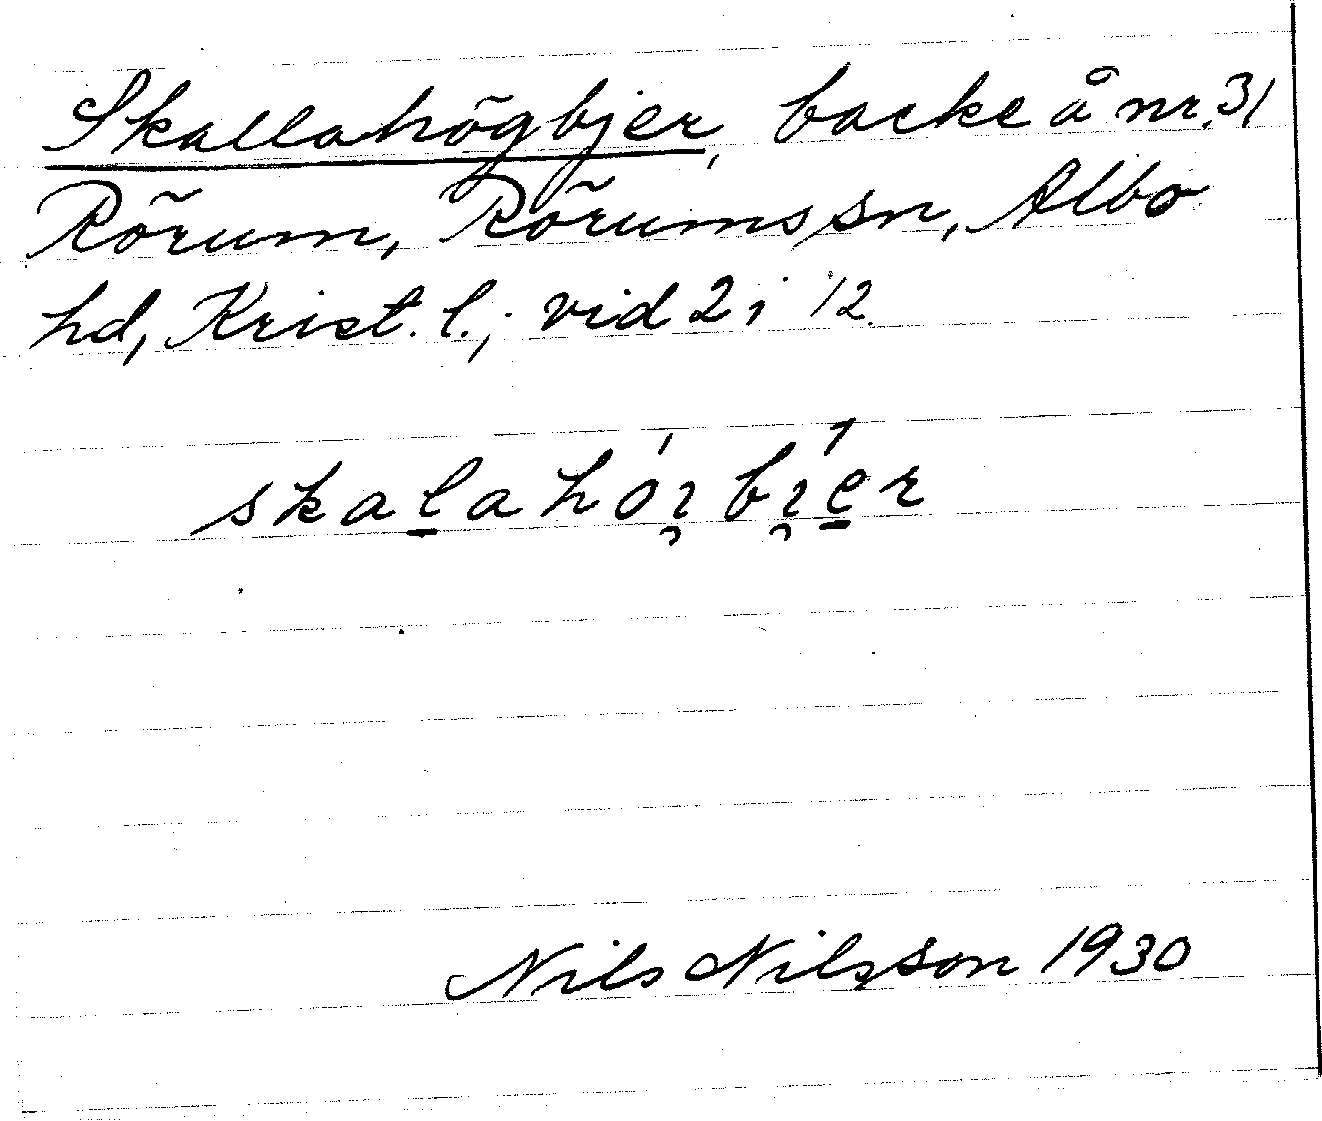 Skallahögbjer, backe å nr. 31
Rörum, Rörums sn, Albo
hd, Krist. l.; vid 2 i 12.
skalahóı̯bı̯er
Nils Nilsson 1930